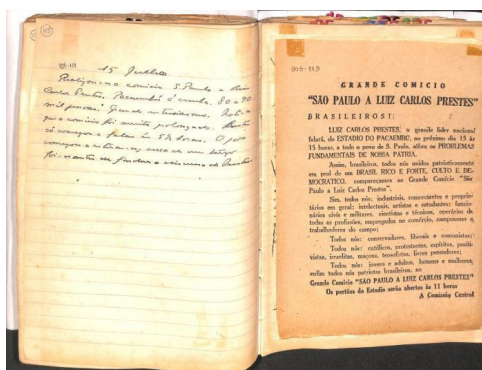 15 Julho
Carlos Prestes. Pacaembú é cunha. 80 a 90
mil pessoas!
que o comicio foi muito prolongado.
só começou a falar às 5½ horas. O povo
006-113
GRANDE COMICIO
"SÃO PAULO A LUIZ CARLOS PRESTES"
BRASILEIROS!:
LUIZ CARLOS PRESTES, o grande lider nacional
falará, do ESTADIO DO PACAEMBÚ, no próximo dia 15 às
15 horas, a todo o povo de S. Paulo, sôbre os PROBLEMAS
FUNDAMENTAIS DE NOSSA PATRIA.
Assim, brasileiros, todos nós unidos patrioticamente
em prol de um BRASIL RICO E FORTE, CULTO E DE-
MOCRATICO, compareçamos ao Grande Comicio "São
Paulo a Luiz Carlos Prestes".
Sim, todos nós: industriais, comerciantes e proprie-
tários em geral; intelectuais, artistas e estudantes; funcio-
nários civis e militares, cientistas e técnicos, operários de
todas as profissões, empregados no comércio, camponeses e
trabalhadores do campo;
Todos nós: conservadores, liberais e comunistas;
Todos nós: católicos, protestantes, espíritas, positi-
vistas, israelitas, maçons, teosofistas, livres pensadores;
Todos nós: jovens e adultos, homens e mulheres,
enfim todos nós patriotas brasileiros, ao
Grande Comicio "SÃO PAULO A LUIZ CARLOS PRESTES"
Os portões do Estadio serão abertos às 11 horas
A Comissão Central